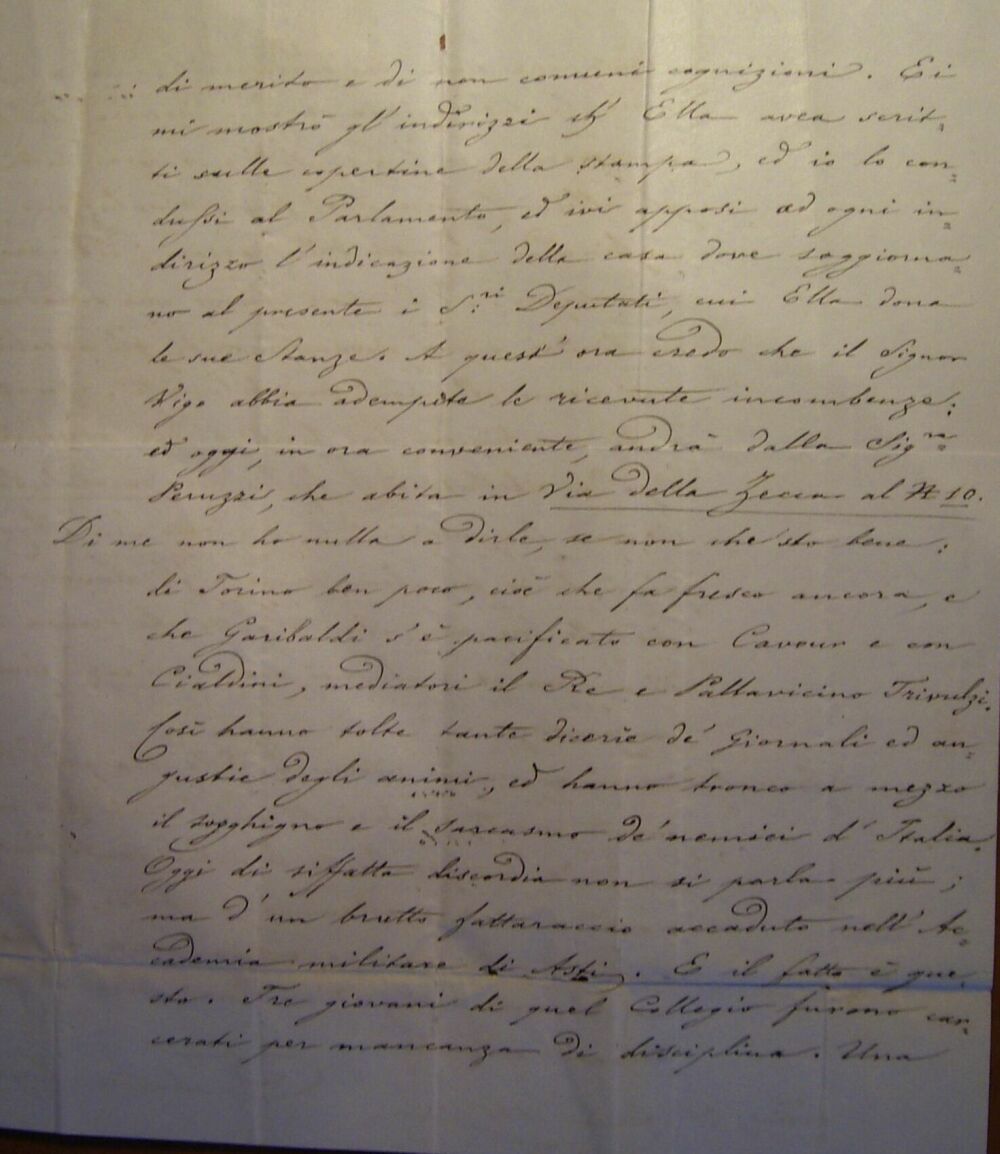 di merito e di non comuni cognizioni. Ei
mi mostrò gl'indirizzi ch' Ella avea scrit=
ti sulle copertine della stampa, ed io lo con=
dussi al Parlamento, ed ivi apposi ad ogni in=
dirizzo l'indicazione della casa dove soggiorna=
no al presente i S.ri Deputati, cui Ella dona
le sue Stanze. A quest'ora credo che il Signor
Vigo abbia adempite le ricevute incombenze:
ed oggi, in ora conveniente, andrà dalla Sig.ra
Peruzzi, che abita in Via della Zecca al N 10.
Di me non ho nulla a dirle, se non che sto bene:
di Torino ben poco, cioè che fa fresco ancora, e
che Garibaldi s'è pacificato con Cavour e con
Cialdini, mediatori il Re e Pallavicino Trivulzi.
Così hanno tolte tante dicerie de' Giornali ed an=
gustie degli animi, ed hanno tronco a mezzo
il sogghigno e il sarcasmo de' nemici d' Italia.
Oggi di siffatta discordia non si parla più;
ma d'un brutto fattaraccio accaduto nell' Ac=
cademia militare di Asti. E il fatto è que=
sto. Tre giovani di quel Collegio furono car=
cerati per mancanza di disciplina. Una